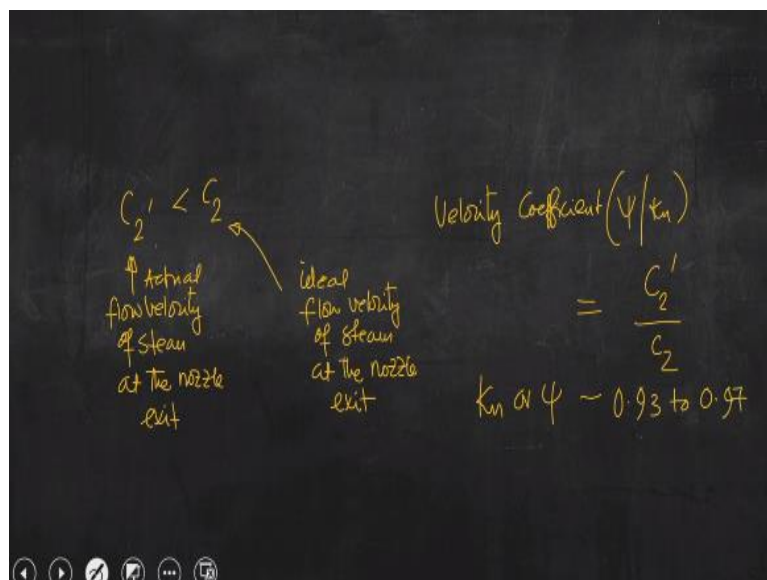 C₂' < C₂
↑ Actual
flow velocity
of steam
at the nozzle
exit
ideal
flow velocity
of steam
at the nozzle
exit
Velocity Coefficient (ψ/Kn)
= C₂' / C₂
Kn or ψ ~ 0.93 to 0.97